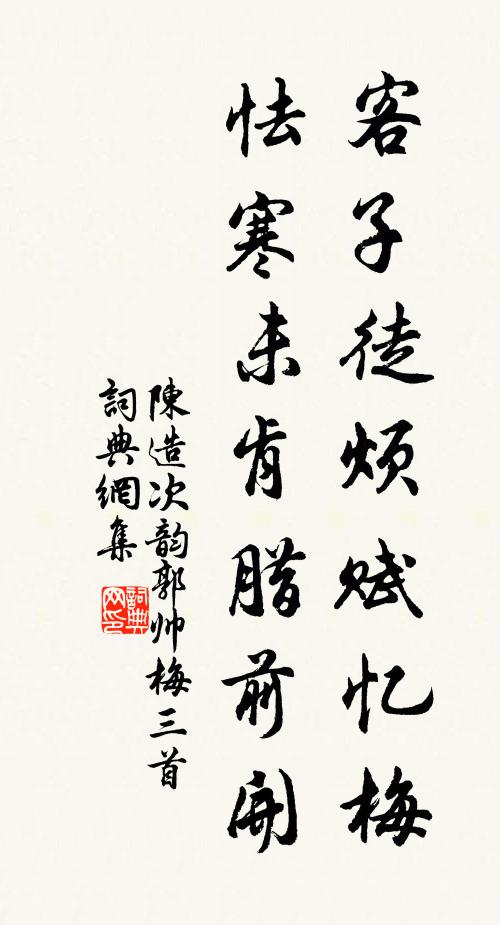 客子徒烦赋忆梅
怯寒未肯腊前開
陳造次韵郭帅梅三首
詞典網集
詞典网印